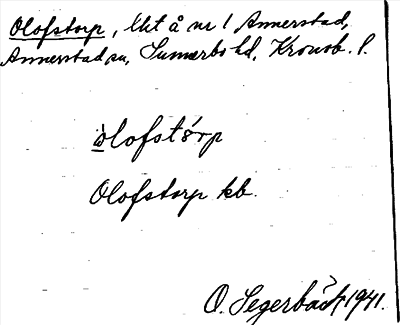 Olofstorp, lht å nr 1 Annerstad,
Annerstad sn, Sunnerbo hd, Kronob. l.
òlofstórp
Olofstorp kb.
O. Segerbäck 1941.